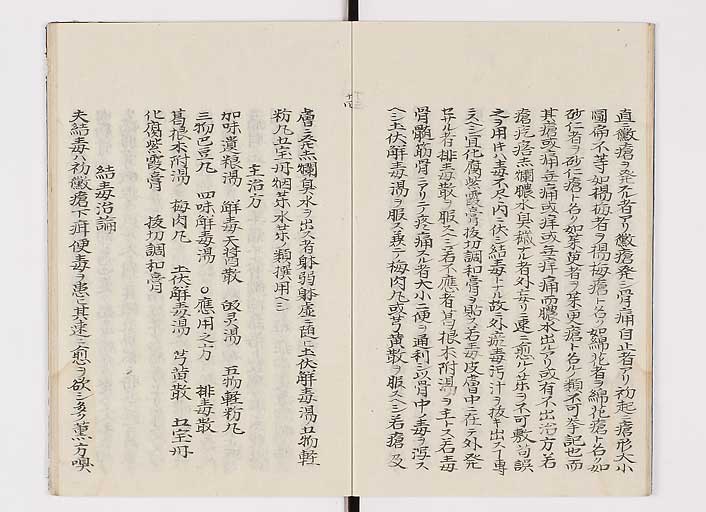 直ニ黴瘡ヲ発スル者アリ黴瘡発シ骨痛自止者アリ初起ニ瘡形大小
圓痛不等如楊梅者ヲ楊梅瘡ト名ク如綿花者ヲ綿花瘡ト名ク如
砂仁者ヲ砂仁瘡ト名ク如茱萸者ヲ茱萸瘡ト名ク類不可挙記也而
其瘡或痛無痛或痒或無痒痛而膿水出ルアリ或有不出治方若
瘡疙瘩点爛膿水臭穢ナル者外妄リニ速ニ愈ル薬ヲ不可敷若誤
之ヲ用井毒不尽内ニ伏シ結毒トナル故ニ外瘀毒汚汁ヲ抜キ出スヿ専
ラスヘシ宜化腐紫霞膏抜切調和膏ヲ貼ス若毒皮膚中ニ在テ外発
セサル者排毒散ヲ服スヘシ若不應者葛根木附湯ヲ主トス若毒
骨髄筋骨ニアリテ疼痛スル者大小二便ヲ通利シ以骨中ノ毒ヲ瀉ス
ヘシ土伏解毒湯ヲ服ス兼テ梅肉丸或芎黄散ヲ服スヘシ若瘡及
膚ニ発点爛臭水ヲ出ス者躰弱躰虚ニ随ヒ土伏解毒湯五物軽
粉丸五宝丹烟薬水薬ノ類撰用ヘシ
主治方
加味遺粮湯 解毒天将散 敗灵湯 五物軽粉丸
三物巴豆丸 四味解毒湯 ○應用之方 排毒散
葛根木附湯 梅肉丸 土伏解毒湯 芎黄散 五宝丹
化腐紫霞膏 抜切調和膏
結毒治論
夫結毒ハ初黴瘡下疳便毒ヲ患ヒ其速ニ愈ヲ欲シ多ク薫方嗅